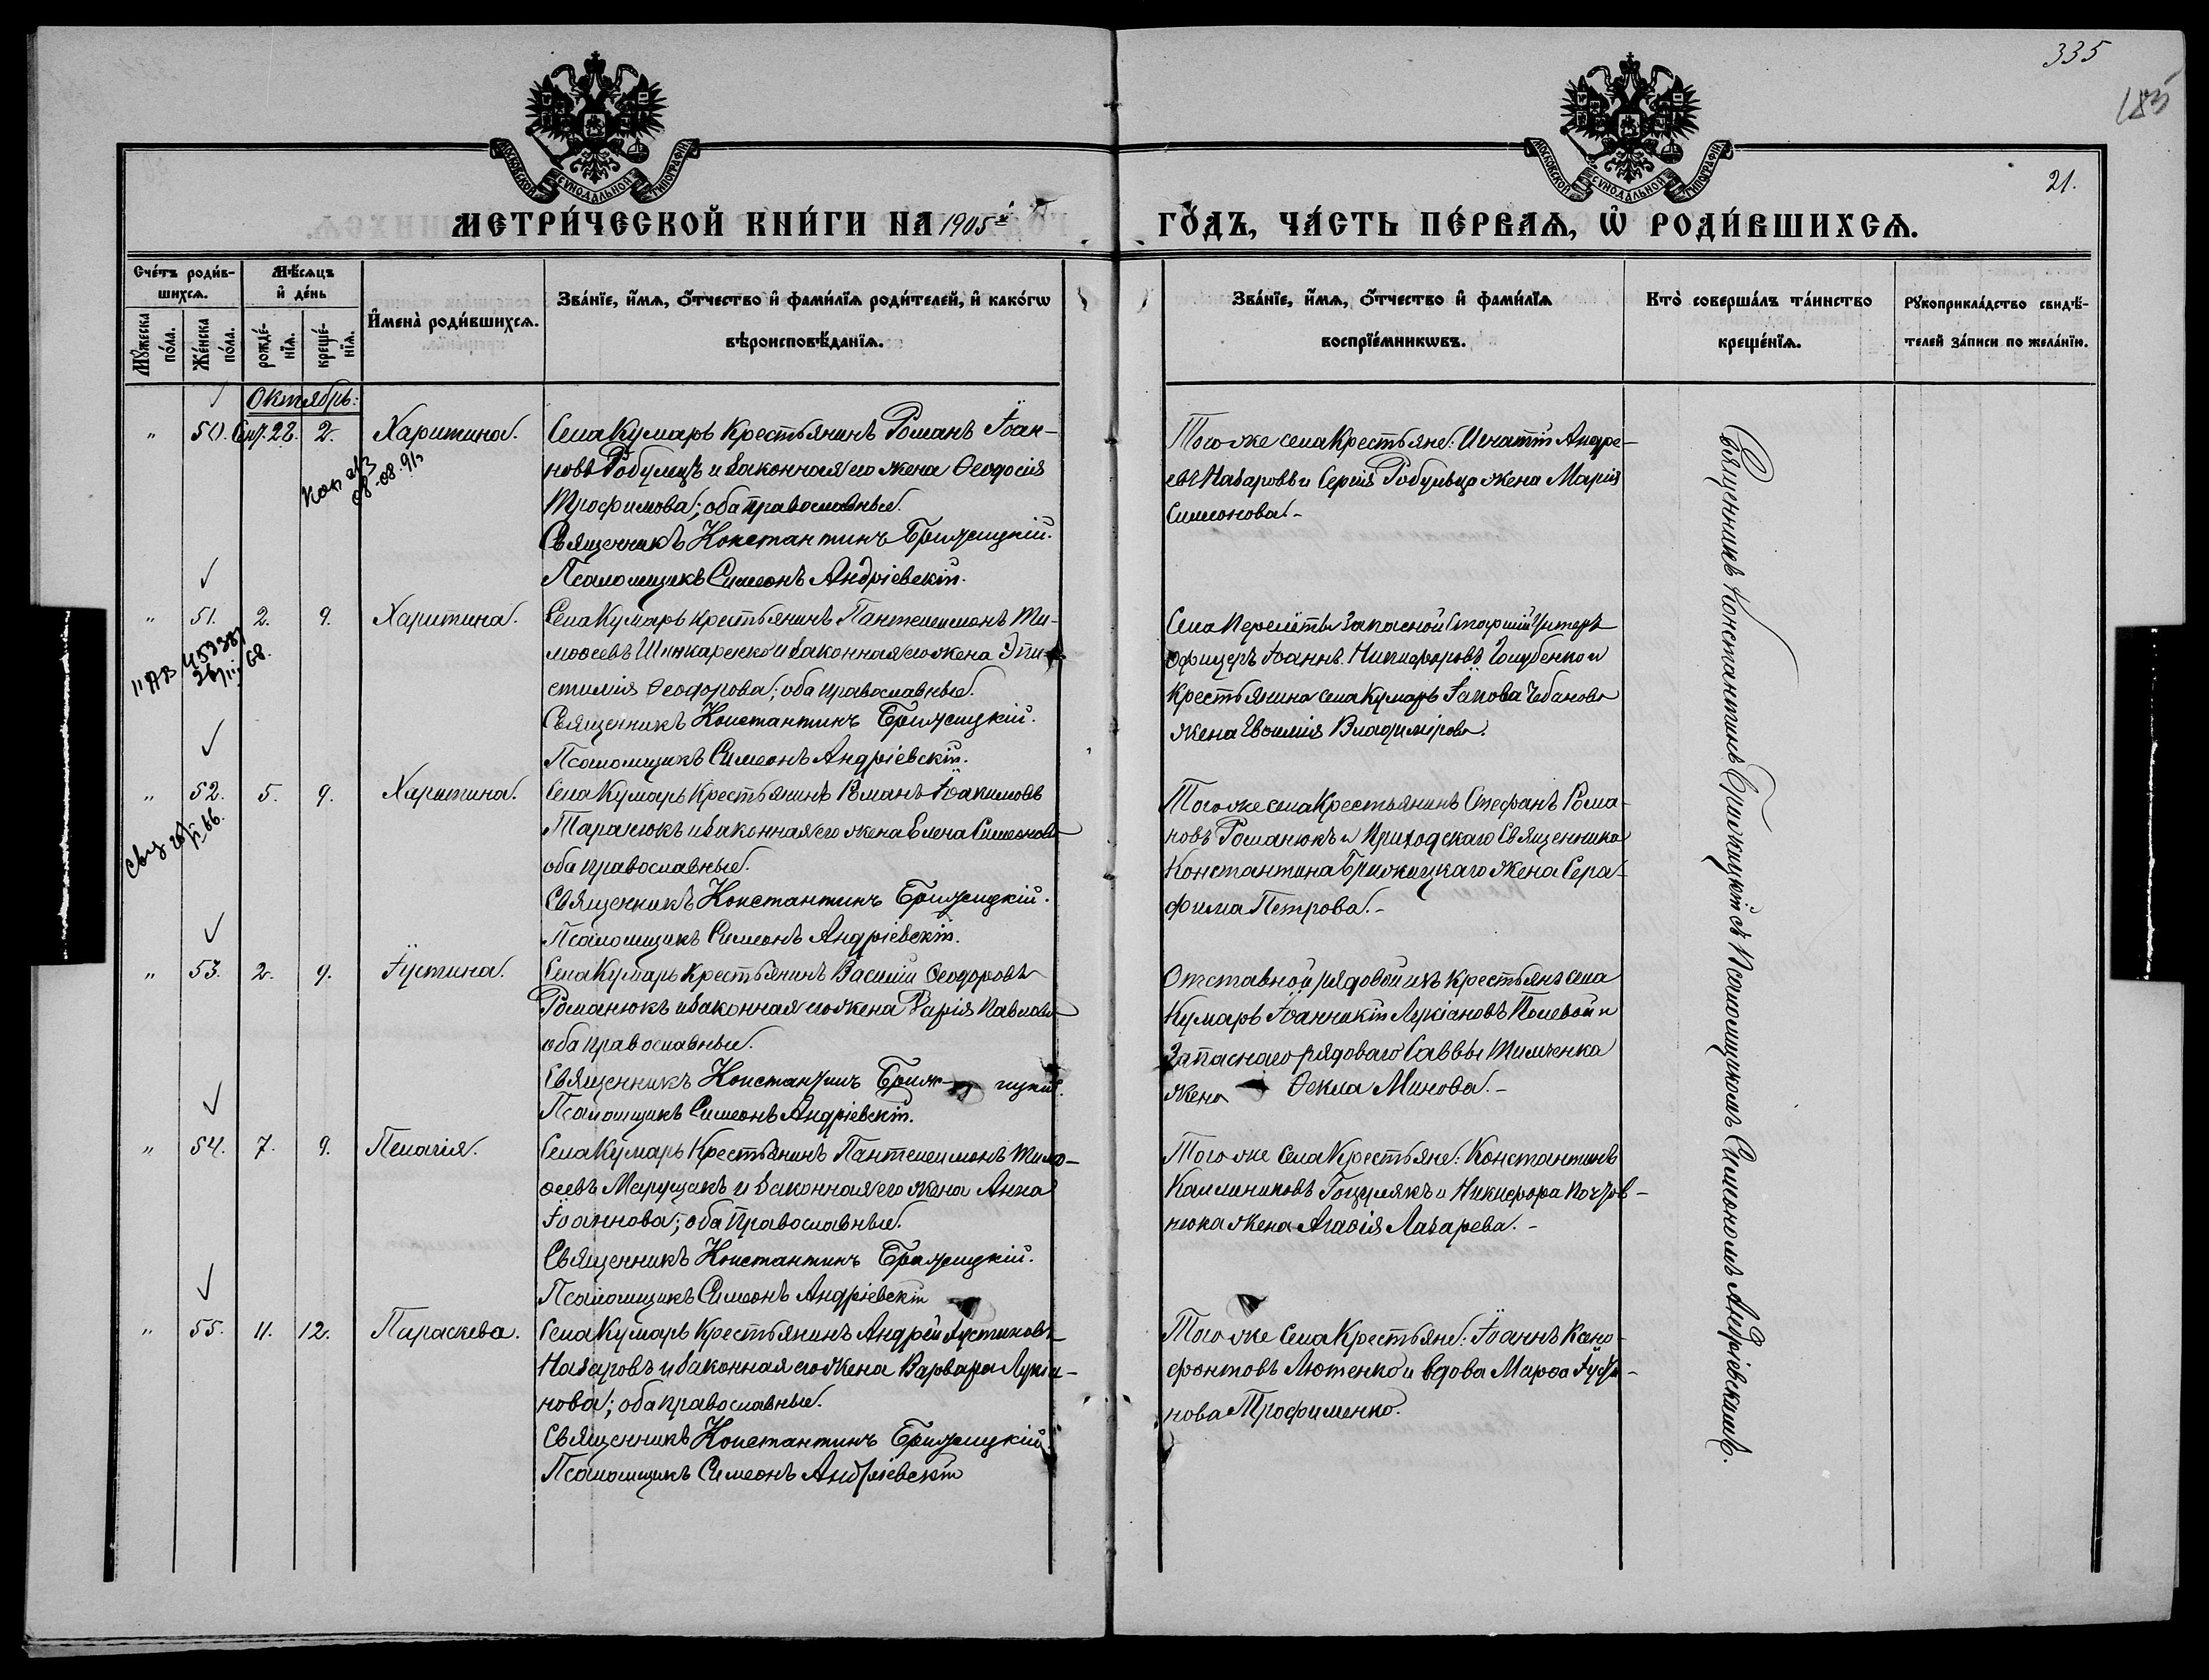 335
185
21.
МОСКОВСКОЙ СѴНОДАЛЬНОЙ ТИПОГРАФІИ
МОСКОВСКОЙ СѴНОДАЛЬНОЙ ТИПОГРАФІИ
МЕТРИ́ЧЕСКОЙ КНИ́ГИ НА 1905й
ГО́ДЪ, ЧА́СТЬ ПЕ́РВАѦ, Ѡ҆ РОДИ́ВШИХСѦ.
Сче́тъ роди́в-
шихсѧ.
Мꙋжеска по́ла.
Же́нска по́ла.
Мѣ́сѧцъ
и҆ де́нь
рожде́-
нїѧ.
креще́-
нїѧ.
И҆мена̀ роди́вшихсѧ.
Зва́нїе, и҆́мѧ, ѻ҆́тчество и҆ фами́лїѧ роди́телей, и҆ како́гѡ
вѣроисповѣ́данїѧ.
Зва́нїе, и҆́мѧ, ѻ҆́тчество и҆ фами́лїѧ
воспрїе́мникѡвъ.
Кто̀ соверша́лъ та́инство
креще́нїѧ.
Рꙋкоприкла́дство свидѣ́-
телей за́писи по жела́нїю.
Октябрь:
" 50. Сен. 28. 2. Харитина.
Села Кумаръ Крестьянинъ Романъ Іоан-
новъ Робулецъ и законная его жена Ѳеодосія
Трофимова; оба православные.
Священникъ Константинъ Брижицкій.
Псаломщикъ Симеонъ Андріевскій.
Того же села Крестьяне: Игнатій Андре-
евъ Назаровъ и Сергія Робульца жена Марія
Симеонова.-
08-08-91
" 51. 2. 9. Харитина.
Села Кумаръ крестьянинъ Пантелеимонъ Ти-
моѳеевъ Шинкаренко и законная его жена Эпи-
стимія Ѳеодорова; оба православные.
Священникъ Константинъ Брижицкій.
Псаломщикъ Симеонъ Андріевскій.
Села Перелеты Запасной Старшій Унтеръ
офицеръ Іоаннъ Никифоровъ Голубенко и
крестьянина села Кумаръ Іакова Чебанова
жена Евѳимія Владимірова.
" 52. 5. 9. Харитина.
Села Кумаръ Крестьянинъ Романъ Іоакимовъ
Таранюкъ и законная его жена Елена Симеонова
оба православные.
Священникъ Константинъ Брижицкій.
Псаломщикъ Симеонъ Андріевскій.
Того же села Крестьянинъ Стефанъ Рома-
новъ Романюкъ и Приходскаго Священника
Константина Брижицкаго жена Сера-
фима Петрова.-
" 53. 2. 9. Іустина.
Села Кумаръ Крестьянинъ Василій Ѳеодоровъ
Романюкъ и законная его жена Дарія Павлова
оба православные.
Священникъ Константинъ Брижицкій.
Псаломщикъ Симеонъ Андріевскій.
Отставной рядовой изъ крестьянъ села
Кумаръ Іоанникій Лукіановъ Полевой и
Запаснаго рядоваго Саввы Тимченка
жена Ѳекла Минова.-
" 54. 7. 9. Пелагія.
Села Кумаръ Крестьянинъ Пантелеимонъ Тимо-
ѳеевъ Марущакъ и законная его жена Анна
Іоаннова; оба православные.
Священникъ Константинъ Брижицкій.
Псаломщикъ Симеонъ Андріевскій
Того же Села Крестьяне: Константинъ
Каллиниковъ Гоцулякъ и Никифора
жена Агаѳія Лазарева.-
" 55. 11. 12. Параскева.
Села Кумаръ Крестьянинъ Андрей Іустиновъ
Назаровъ и законная его жена Варвара Лукіа-
нова; оба православные.
Священникъ Константинъ Брижицкій
Псаломщикъ Симеонъ Андріевскій
Того же Села Крестьяне: Іоаннъ Ксено-
фонтовъ Лютенко и вдова Марѳа Іусти-
нова Трофименко.
Священникъ Константинъ Брижицкій съ Псаломщикомъ Симеономъ Андріевскимъ.